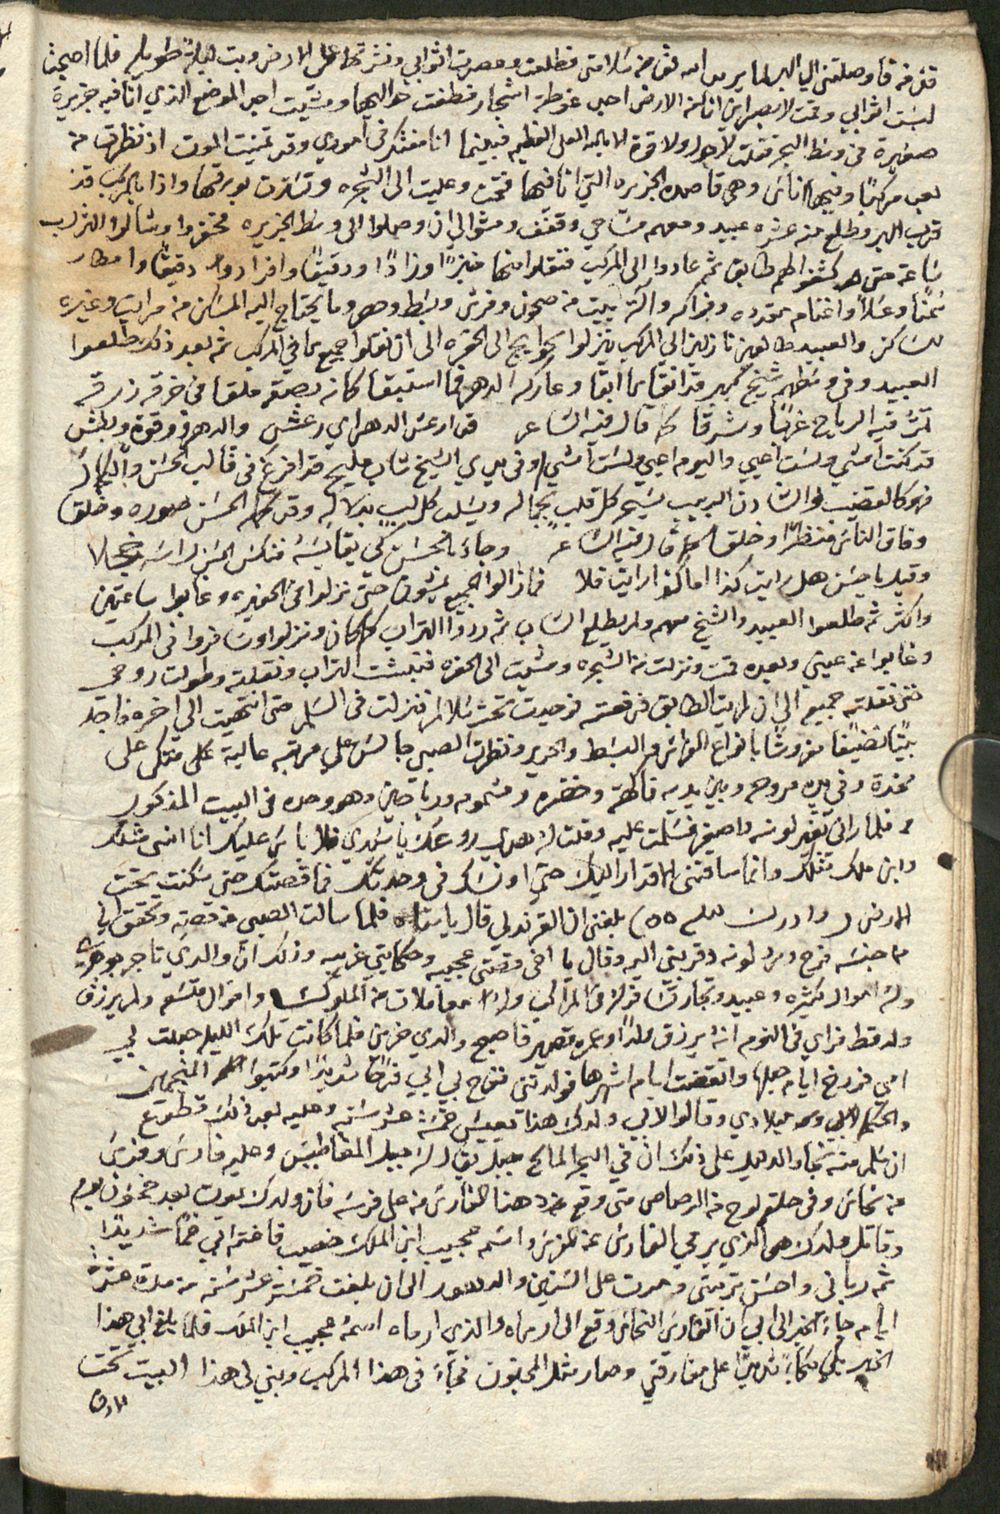 قذفة فاوصلتني الي البر لما يريد الله تعالى من سلامتي فطلعت وعصرت اثوابي ونشرتها على الارض وبت ليلة طويله فلما اصبحت
لبست اثوابي وقمت لابصر اين انا من الارض اجد غوطة اشجار فطفت حواليها ومشيت اجد الموضع الذي انا فيه جزيرة
صغيرة في وسط البحر فقلت لا حول ولا قوة الا بالله العلي العظيم فبينما انا متفكر في اموري وقد تمنيت الموت اذ نظرت من
بعد مركبا وفيها اناس وهي قاصده الجزيره التي انا فيها فقمت وعليت الى الشجره وتسترت بورقها واذا بالمركب قد
قرب البر وطلع منه عشره عبيد ومعهم مساحي وقفف ومشوا الى ان وصلوا الى وسط الجزيره فحفروا وشالوا التراب
ساعة حتى كشفوا لهم طابق ثم عادوا الى المركب فنقلوا منها خبزا وزادا ودقيقا
سمنا وعسلا واغنام مقدده وفواكه والة بيت من صحون وفرش وبسط وحصر وما يحتاج اليه المسكن من مراتب وغيره
والعبيد طالعين نازلين الى المركب ينزلوا بحوايج الى الحفره الى ان نقلوا جميع ما في المركب ثم بعد ذلك طلعوا
العبيد وفي وسطهم شيخ كبير قد ابقا ما ابقا وعاركه الدهر فما استبقا كانه بصقه ملقا في خرقه زرقه
تمر فيه الرياح غربا وشرقا كما قال فيه الشاعر قد ارعش الدهر اي رعش والدهر ذو قوة وبطش
قد كنت امشي ولست اعيي واليوم اعيي ولست امشي وفي يدي الشيخ شاب مليح قد افرغ في قالب الحسن والكمال
فهو كالقضيب او الشادن الربيب يسبي كل قلب بجماله ويسلب كل لب بدلاله وقد كمل الحسن صوره وخلق
وفاق الناس منظرا وخلق كما قال فيه الشاعر وجاء بالحسن كي يقايسه فنكس الحسن راسه خجلا
وقيل يا حسن هل رايت كذا اما كذا رايت فلا فما زالوا الجميع يمشون حتى نزلوا في الحفيره وغابوا ساعتين
واكثر ثم طلعوا العبيد والشيخ معهم ولم يطلع الشاب ثم ردوا التراب كما كان ونزلوا وسافروا في المركب
وغابوا عن عيني وبعده قمت ونزلت من الشجره ومشيت الى الحفره فنبشت التراب ونقلته وطولت روحي
حتى نقلته جميع الي ان لميت الطابق فرفعته فوجدت تحت سلالم فنزلت في السلم حتى انتهيت الى اخره فاجد
بيتا نضيفا مفروشا بانواع الفراش والبسط والحرير ونظرت الصبي جالس على مرتبه عاليه متكي على
مخدة وفي يده مروحه وبين يديه فاكهة وخضره ومشموم ورياحين وهو وحده في البيت المذكور
فلما راني تغير لونه واصفر فسلمت عليه وقلت له هدي روعك يا سيدي فلا باس عليك انا انسي مثلك
وابن ملك مثلك وانما ساقتني الاقدار اليك حتى اونسك في وحدتك فما قصتك حتى سكنت تحت
الارض وادرك بلغني ان القرندلي قال يا ستاه فلما سالت الصبي عن قصته وتحقق اني
من جنسه فرح ورد لونه وقربني اليه وقال يا اخي وقصتي عجيبه وحكايتي غريبه وذلك ان والدي تاجر جوهري
وله اموال كثيره وعبيد وتجار تسافر له في المراكب وله معاملات من الملوك واموال متسعه ولم يرزق
ولد قط فراي في النوم انه يرزق ولدا وعمره قصير فاصبح والدي حزين فلما كانت تلك الليله حملت بي
امي فورخ ايام حبلها وانقضت ايام اشهرها فولدتني ففرح بي ابي فرحا شديدا وكتبوا المنجمين
والحكما ميلادي وقالوا لابي ولدك هذا يعيش خمسة عشر سنه وعليه بعد ذلك قطوع
ان سلم منه نجا والدليل على ذلك ان في البحر المالح جبل يقال له جبل المغناطيس وعليه فارس وفرس
من نحاس وفي حلقه لوح من الرصاص متى وقع هذا الفارس من على فرسه فان ولدك يموت بعد خمسون يوم
وقاتل ولدك هو الذي يرمي الفارس عن الفرس واسمه عجيب ابن الملك خصيب فاغتم ابي غما شديدا
ثم رباني واحسن تربيتي ومرت على السنين والدهور الى ان بلغت خمسة عشر سنه من مدة عشرة
ايام جاء الخبر الى ابي ان الفارس النحاس وقع الى والذي ارماه اسمه عجيب ابن الملك فلما بلغ ابي هذا
الخبر بكى بكاء شديدا على مفارقتي وصار مثل المجنون فجاء في هذا المركب وبني لي هذا البيت تحت